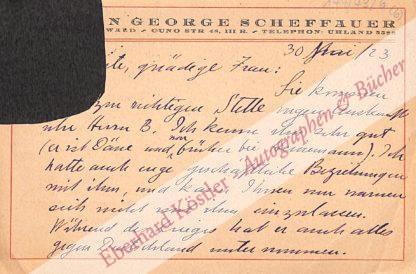 N GEORGE SCHEFFAUER
WALD - CUNO STR 48, III R. - TELEPHON: UHLAND 5595
30 Mai / 23
gnädige Frau:
Sie kommen
zur richtigen Stelle
Herrn B. Ich kenne ihn sehr gut
(er ist Däne und früher bei). Ich
hatte auch enge geschäftliche Beziehungen
mit ihm, und kann Ihnen nur warnen
sich nicht mit ihm einzulassen.
Während des Krieges hat er auch alles
gegen Deutschland unternommen.
Eberhard Köstler - Autographen & Bücher